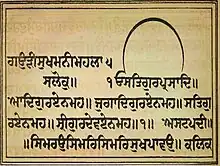 ਗਉੜੀਸੁਖਮਨੀਮਹਲਾ ੫
ਸਲੋਕੁ॥ ੴਸਤਿਗੁਰਪ੍ਰਸਾਦਿ॥
ਆਦਿਗੁਰਏਨਮਹ॥ ਜੁਗਾਦਿਗੁਰਏਨਮਹ॥ ਸਤਿਗੁ
ਰਏਨਮਹ॥ ਸ੍ਰੀਗੁਰਦੇਵਏਨਮਹ॥੧॥ ਅਸਟਪਦੀ॥
ਸਿਮਰਉਸਿਮਰਿਸਿਮਰਿਸੁਖਪਾਵਉ॥ ਕਲਿਕ